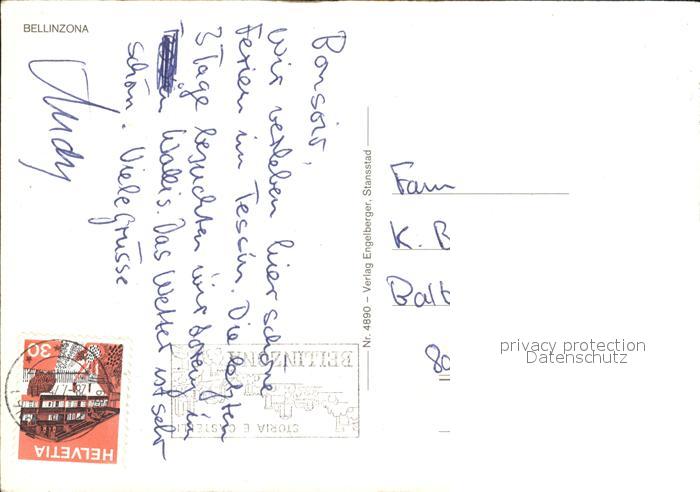 BELLINZONA
Bonsoir,
Wir verleben hier schöne
Ferien im Tessin. Die letzten
3 Tage besuchten wir in
Wallis. Das Wetter ist sehr
schön. Viele Grüsse
Nr. 4890 – Verlag Engelberger, Stansstad
Fam
K. B
Balt
80
privacy protection
Datenschutz
BELLINZONA
STORIA E CASTELLI
30
HELVETIA